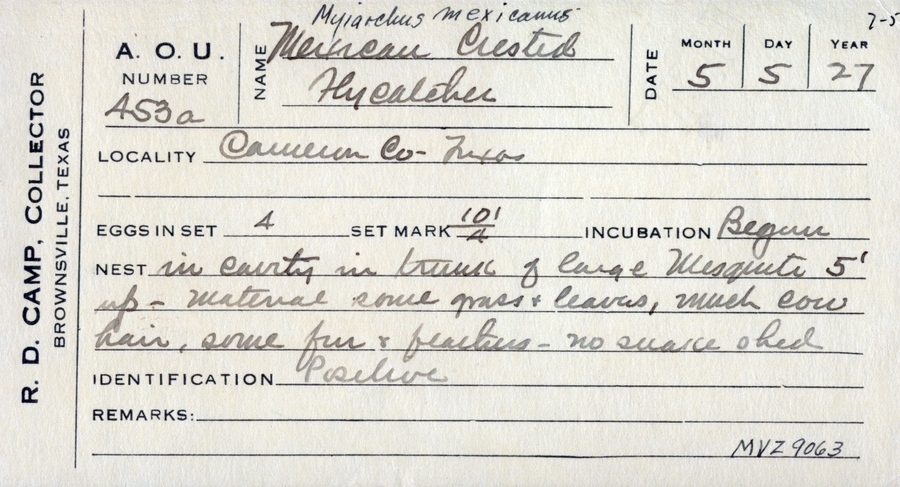 Myiarchus mexicanus
7-5
A. O. U.
NUMBER
453a
NAME
Mexican Crested
Flycatcher
DATE
MONTH DAY YEAR
5 5 27
R. D. CAMP, COLLECTOR
BROWNSVILLE, TEXAS
LOCALITY Cameron Co- Texas
EGGS IN SET 4 SET MARK 101/4 INCUBATION Begun
NEST in cavity in trunk of large Mesquite 5'
up- material some grass & leaves, much cow
hair, some fur & feathers - no snake shed
IDENTIFICATION Positive
REMARKS:
MVZ 9063